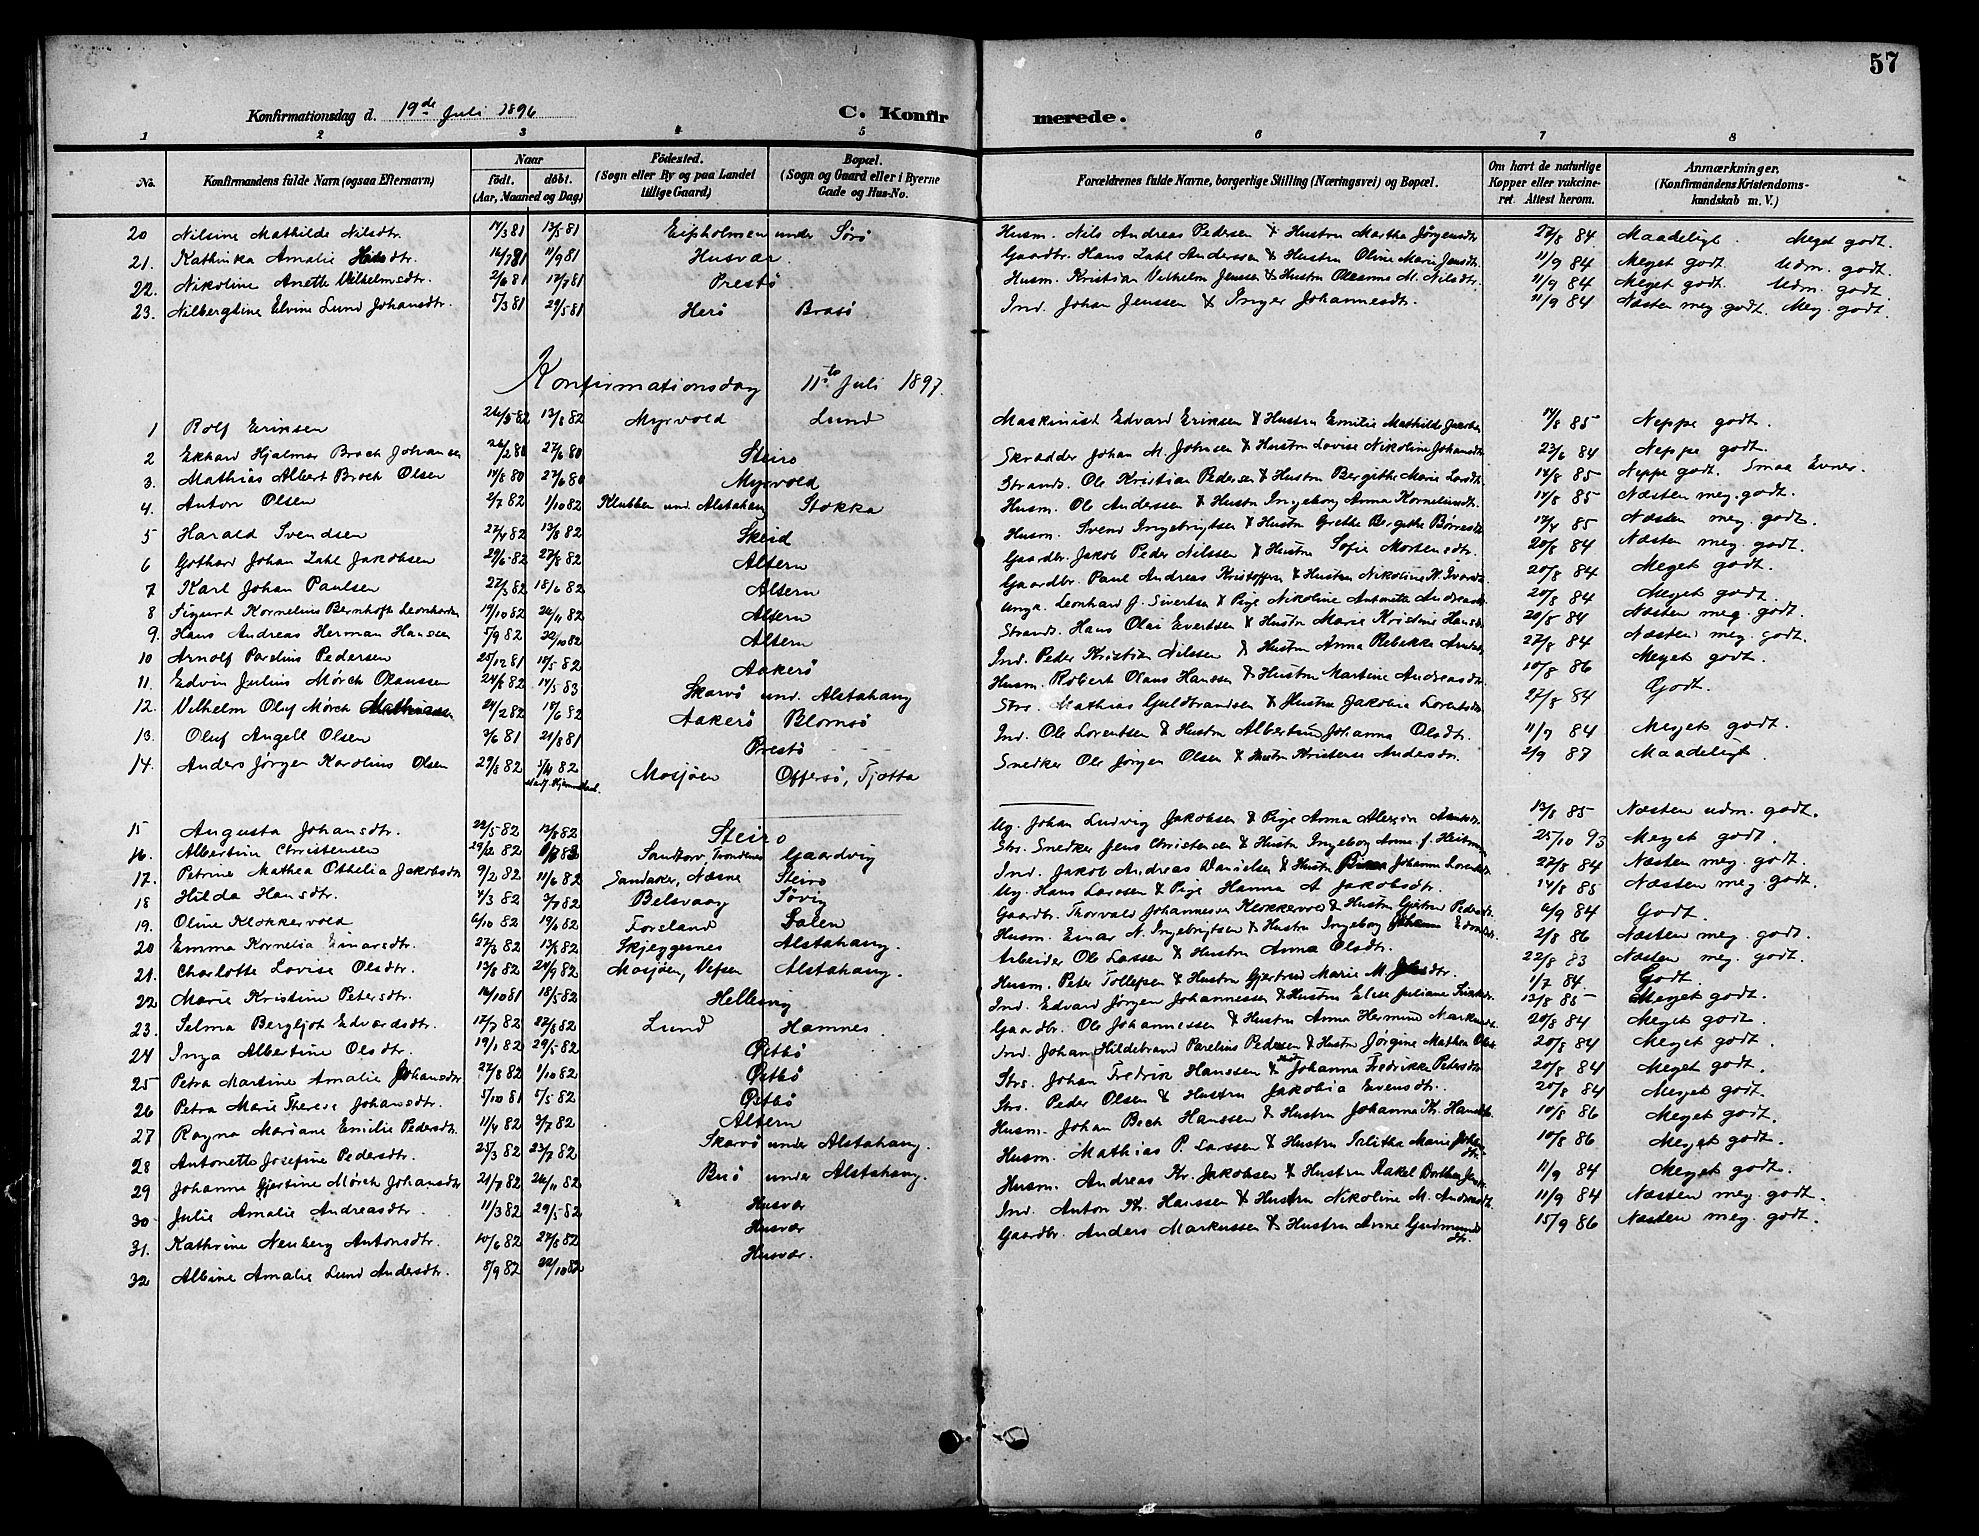 57
Konfirmationsdag d. 19de Juli 1896 C. Konfir merede.
1 2 3 4 5 6 7 8
No. Konfirmandens fulde Navn (ogsaa Efternavn) Naar født. døbt. (Aar, Maaned og Dag) Fødested. (Sogn eller By og paa Landet tillige Gaard) Bopæl. (Sogn og Gaard eller i Byerne Gade og Hus-No. Forældrenes fulde Navne, borgerlige Stilling (Næringsvei) og Bopæl. Om havt de naturlige Kopper eller vakcineret. Attest herom. Anmærkninger. (Konfirmandens Kristendomskundskab m. V.)
20 Nilsine Mathilde Nilsdtr. 17/3 81 13/5 81 under Sörö Husm. Nils Andreas Pedersen & Hustru Martha Jørgensdtr 27/8 84 Maadeligt. Meget godt.
21. Kathinka Amalie Hansdtr. 16/7 81 11/9 81 Husvær. Gaardbr. Hans Zahl Anderssen & Hustru Oline Marie Jensdtr. 11/9 84 Meget godt. Udm. godt.
22. Nikoline Anette Vilhelmsdtr. 2/6 81 17/7 81 Prestö. Husm. Kristian Vilhelm Jenssen & Hustru Oleanna M. Nilsdtr. 11/9 84 Meget godt. Udm. godt.
23. Nilbergtine Elvine Lund Johansdtr. 5/3 81 29/5 81 Herö Brasö Ind. Johan Jenssen & Inger Johannesdtr. 11/9 84 Næsten meg godt. Meg. godt.
Konfirmationsdag 11te Juli 1897.
1 Rolf Eriksen 26/5 82 13/8 82 Myrvold Lund Maskinist Edvard Eriksen & Hustru Emilie Mathilde 14/8 85 Neppe godt.
2 Ekhard Hjalmar Broch Johansen 26/2 80 27/6 80 Steiro Skrædder Johan M. Johnsen & Hustru Lovise Nikoline Johansdtr 23/6 84 Neppe godt.
3. Mathias Albert Broch Olsen 14/8 80 27/6 80 Myrvold Strands. Ole Kristian Pedersen & Hustru Bergithe Marie Larsdtr 14/8 85 Neppe godt. Smaa Evner.
4. Anton Olsen 2/7 82 1/10 82 Klubben und. Alstahaug Stokka Husm. Ole Anderssen & Hustru Ingeborg Anna Korneliusdtr. 14/8 85 Næsten meg. godt.
5 Harald Svendsen 27/4 82 13/8 82 Skeid Husm. Svend Ingebrigtsen & Hustru Grethe Bergithe 85 Næsten meg. godt.
6 Gothard Johan Zahl Jakobsen 29/6 82 27/8 82 Altern Gaardbr. Jakob Peder Nilssen & Hustru Sofie Mortensdtr. 20/8 84 Næsten meg. godt.
7 Karl Johan Paulsen 27/3 82 18/6 82 Altern Gaardbr. Paul Andreas Kristoffersen & Hustru Nikoline K. 20/8 84 Meget godt.
8 Sigurd Kornelius Bernhoft Leonhardsen 19/10 82 26/11 82 Altern Ung. Leonhard J. Sivertsen & Pige Nikoline Antonette Andreasdtr. 20/8 84 Meget godt.
9. Hans Andreas Herman Hansen 5/9 82 22/10 82 Altern Strands. Hans Olai Evertsen & Hustru Marie Kristine Hansdtr. 20/5 84 Næsten meg. godt.
10 Arnolf Parelius Pedersen 25/12 81 18/5 82 Aakerö Ind. Peder Kristian Nilssen & Hustru Anna Rebekka 27/8 84 Næsten meg. godt.
11. Edvin Julius Mörch Olaussen 24/8 82 14/5 83 Skarvö und. Alstahaug Husm. Robert Olaus Hanssen & Hustru Martine Andreasdtr. 10/8 86 Meget godt.
12. Vilhelm Oluf Mörch Mathiassen 24/2 82 18/6 82 Aakerö Blomsö Strs. Mathias Guldbrandsen & Hustru Jakobia Lorentsdtr. 27/8 84 Godt.
13. Oluf Angell Olsen 3/6 81 21/8 81 Prestö Ind. Ole Lorentsen & Hustru Albertine Johanna Olsdtr. 11/9 84 Meget godt.
14. Anders Jörgen Karolius Olsen 29/8 82 82 Mosjöen Offersö, Tjötta Snedker Ole Jörgen Olsen & Hustru Kristense Andersdtr. 2/9 87 Maadeligt
15 Augusta Johansdtr. 22/5 82 13/8 82 Steiro Ug. Johan Ludvig Jakobsen & Pige Anna 13/8 85 Næsten udm. godt.
16. Albertine Christensen 29/12 82 Sandtorv, Trondenes Gaardvig Strs. Snedker Jens Christensen & Hustru Ingeborg Anna f. Heitmann 25/10 93 Meget godt.
17. Petrine Mathea Othelia Jakobsdtr 9/2 82 11/6 82 Sandaker, Næsne Steiro Ind. Jakob Andreas Danielsen & Hustru Johanna Lorentsdtr 27/8 84 Næsten meg. godt.
18 Hilda Hansdtr. 4/3 82 2/7 82 Belsvaag Sövig Ug. Hans Larssen & Pige Hanna A Jakobsdtr. 14/8 85 Næsten meg. godt.
19. Oline Klokkervold 6/10 82 19/6 82 Forsland Salen Gaardbr. Thorvald Johannessen Klokkervold & Hustru Gjertrud Pedersdtr. 6/9 84 Godt.
20 Emma Kornelia Einarsdtr. 27/3 82 13/8 82 Skjeggesnes Alstahaug. Husm. Einar N. Ingebrigtsen & Hustru Ingeborg 2/8 86 Næsten meg. godt.
21. Charlotte Lovise Olsdtr. 13/8 82 24/9 82 Mosjöen, Vefsen Alstahaug. Arbeider Ole Larssen & Hustru Anna Olsdtr. 22/8 83 Næsten meg. godt.
22 Marie Kristine Petersdtr. 16/10 81 18/5 82 Hellesvig Husm. Peter Tollefsen & Hustru Gjertrud Marie M. 1/7 84. Godt.
23. Selma Bergljot Edvardsdtr. 17/7 82 27/8 82 Lund Hamnes. Ind. Edvard Jörgen Johannessen & Hustru Elise Juliane 13/8 85 Meget godt.
24 Inga Albertine Olsdtr. 19/1 82 29/5 82 Östbö Gaardbr. Ole Johannessen & Hustru Anna Hermine 20/8 84 Meget godt.
25 Petra Martine Amalie Johansdtr 27/8 82 1/10 82 Östbö Ind. Johan Hildebrand Parelius Pedersen & Hustru Jörgine Mathea 20/8 84 Meget godt.
26 Petra Marie Therese Johansdtr. 5/10 81 5/5 82 Östbö Strs. Johan Fredrik Hanssen & Hustru Johanna Fredrikke Petersdtr 20/8 84 Meget godt.
27 Ragna Mariane Emilie Pedersdtr. 11/4 82 2/7 82 Altern Strs. Peder Olsen & Hustru Jakobia Evensdtr. 20/8 84 Meget godt.
28 Antonette Josefine Pedersdtr. 25/3 82 23/7 82 Skarvö under Alstahaug. Husm. Johan Bech Hanssen & Hustru Johanna 10/8 86 Meget godt.
29 Johanna Gjertine Mörch Johansdtr 21/7 82 26/11 82 Buö under Alstahaug. Husm. Mathias P. Larssen & Hustru Talitha Marie dtr. 10/8 86 Meget godt.
30 Julie Amalie Andreasdtr. 11/3 82 29/5 82 Husvær Husm. Andreas Kr. Jakobsen & Hustru Rakel 11/9 84 Meget godt.
31. Kathrine Neuberg Antonsdtr. 10/6 82 27/8 82 Husvær Ind. Anton Kr. Hanssen & Hustru Nikoline M. Andreasdtr. 11/9 84 Næsten meg. godt.
32 Albine Amalie Lund Andersdtr. 8/9 82 22/10 82 Husvær. Gaardbr. Anders Markussen & Hustru Anne Gudmunds dtr. 15/9 86 Næsten meg. godt.